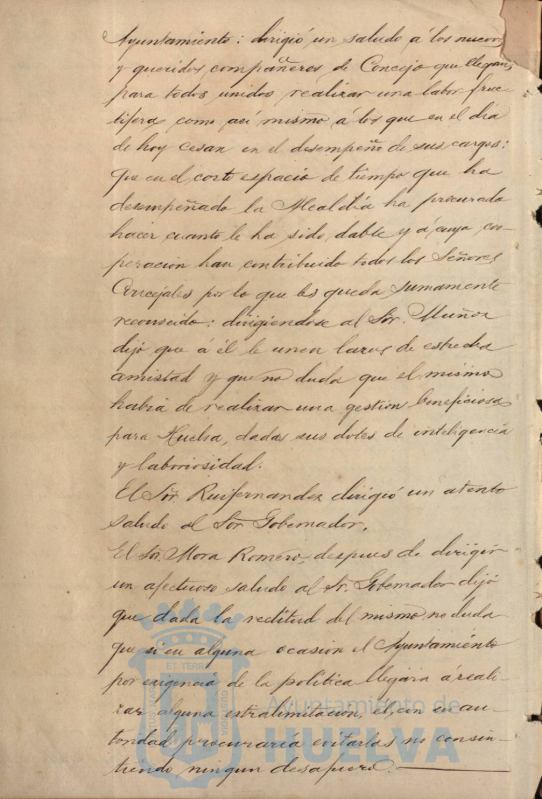 Ayuntamiento: dirigió un saludo á los nuevos
y queridos compañeros de Concejo que llegan,
para todos unidos realizar una labor fruc-
tifera, como así mismo á los que en el dia
de hoy cesan en el desempeño de sus cargos:
que en el corto espacio de tiempo que ha
desempeñado la Alcaldía ha procurado
hacer cuanto le ha sido dable y á cuya coo-
peracion han contribuido todos los Señores
Concejales por lo que les queda sumamente
reconocido: dirigiendose al Sor. Muñoz
dijo que á él le unen lazos de estrecha
amistad y que no duda que el mismo
habia de realizar una gestion beneficiosa
para Huelva, dadas sus dotes de inteligencia
y laboriosidad.
El Sor. Ruifernandez dirigió un atento
saludo al Sor. Gobernador.
El Sr. Mora Romero, despues de dirigir
un afectuoso saludo al Sr. Gobernador dijo
que dada la rectitud del mismo no duda
que si en alguna ocasion el Ayuntamiento
por exigencia de la politica llegara á reali-
zar alguna extralimitacion, el, con su au-
toridad procuraria evitarlas no consin-
tiendo ningun desafuero.
ET TERRÆ
Ayuntamiento de
HUELVA